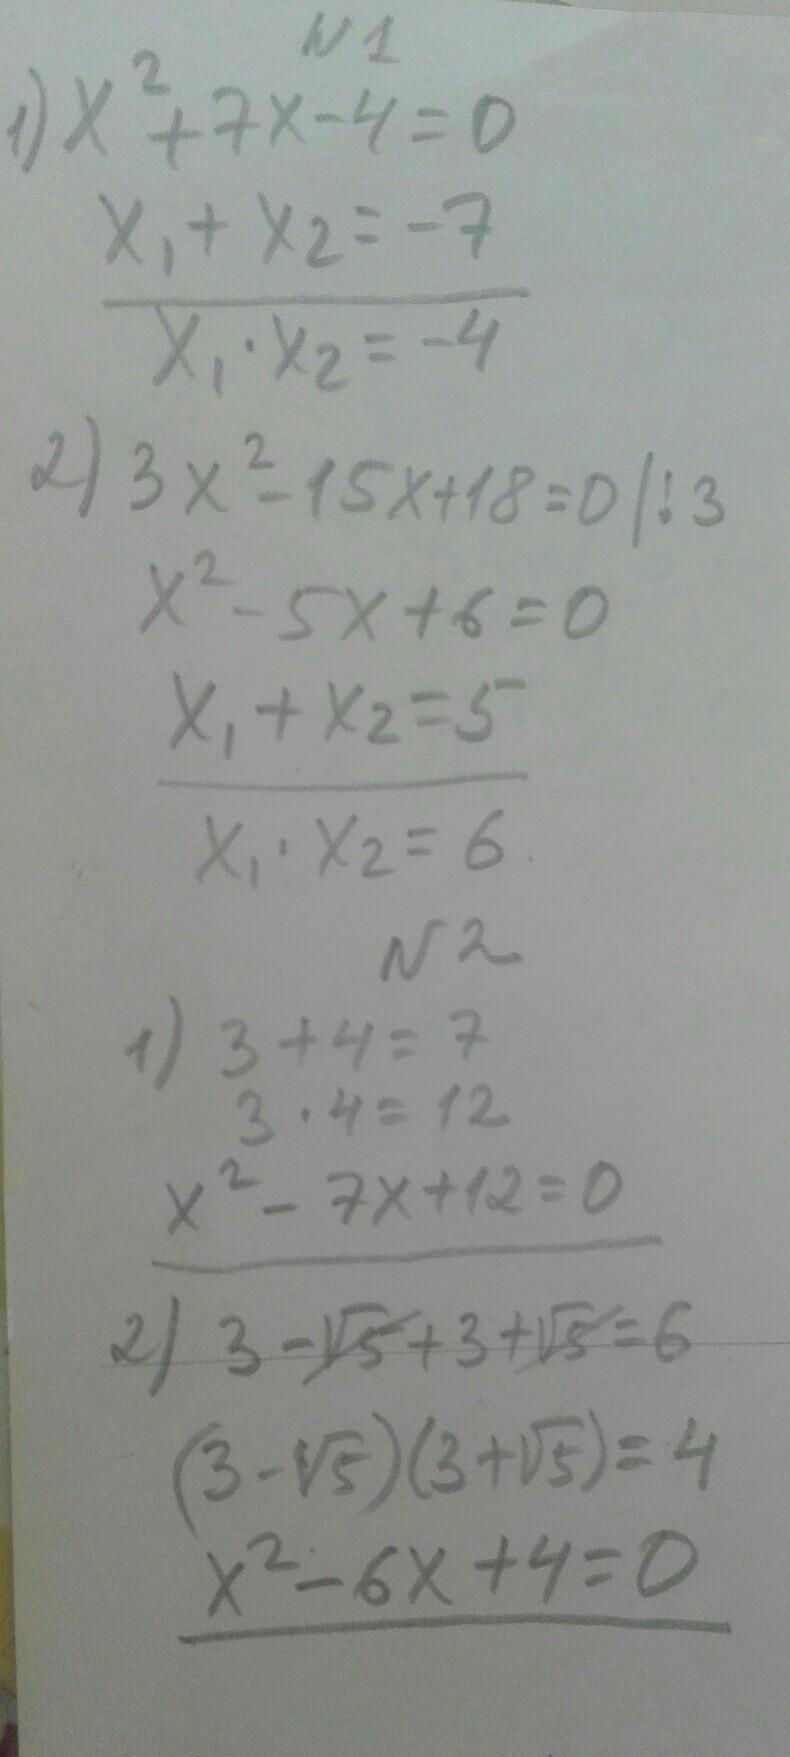 N 1
1) x² + 7x - 4 = 0
x₁ + x₂ = -7
x₁ · x₂ = -4
2) 3x² - 15x + 18 = 0 | : 3
x² - 5x + 6 = 0
x₁ + x₂ = 5
x₁ · x₂ = 6
N 2
1) 3 + 4 = 7
3 · 4 = 12
x² - 7x + 12 = 0
2) 3 - √5 + 3 + √5 = 6
(3 - √5)(3 + √5) = 4
x² - 6x + 4 = 0